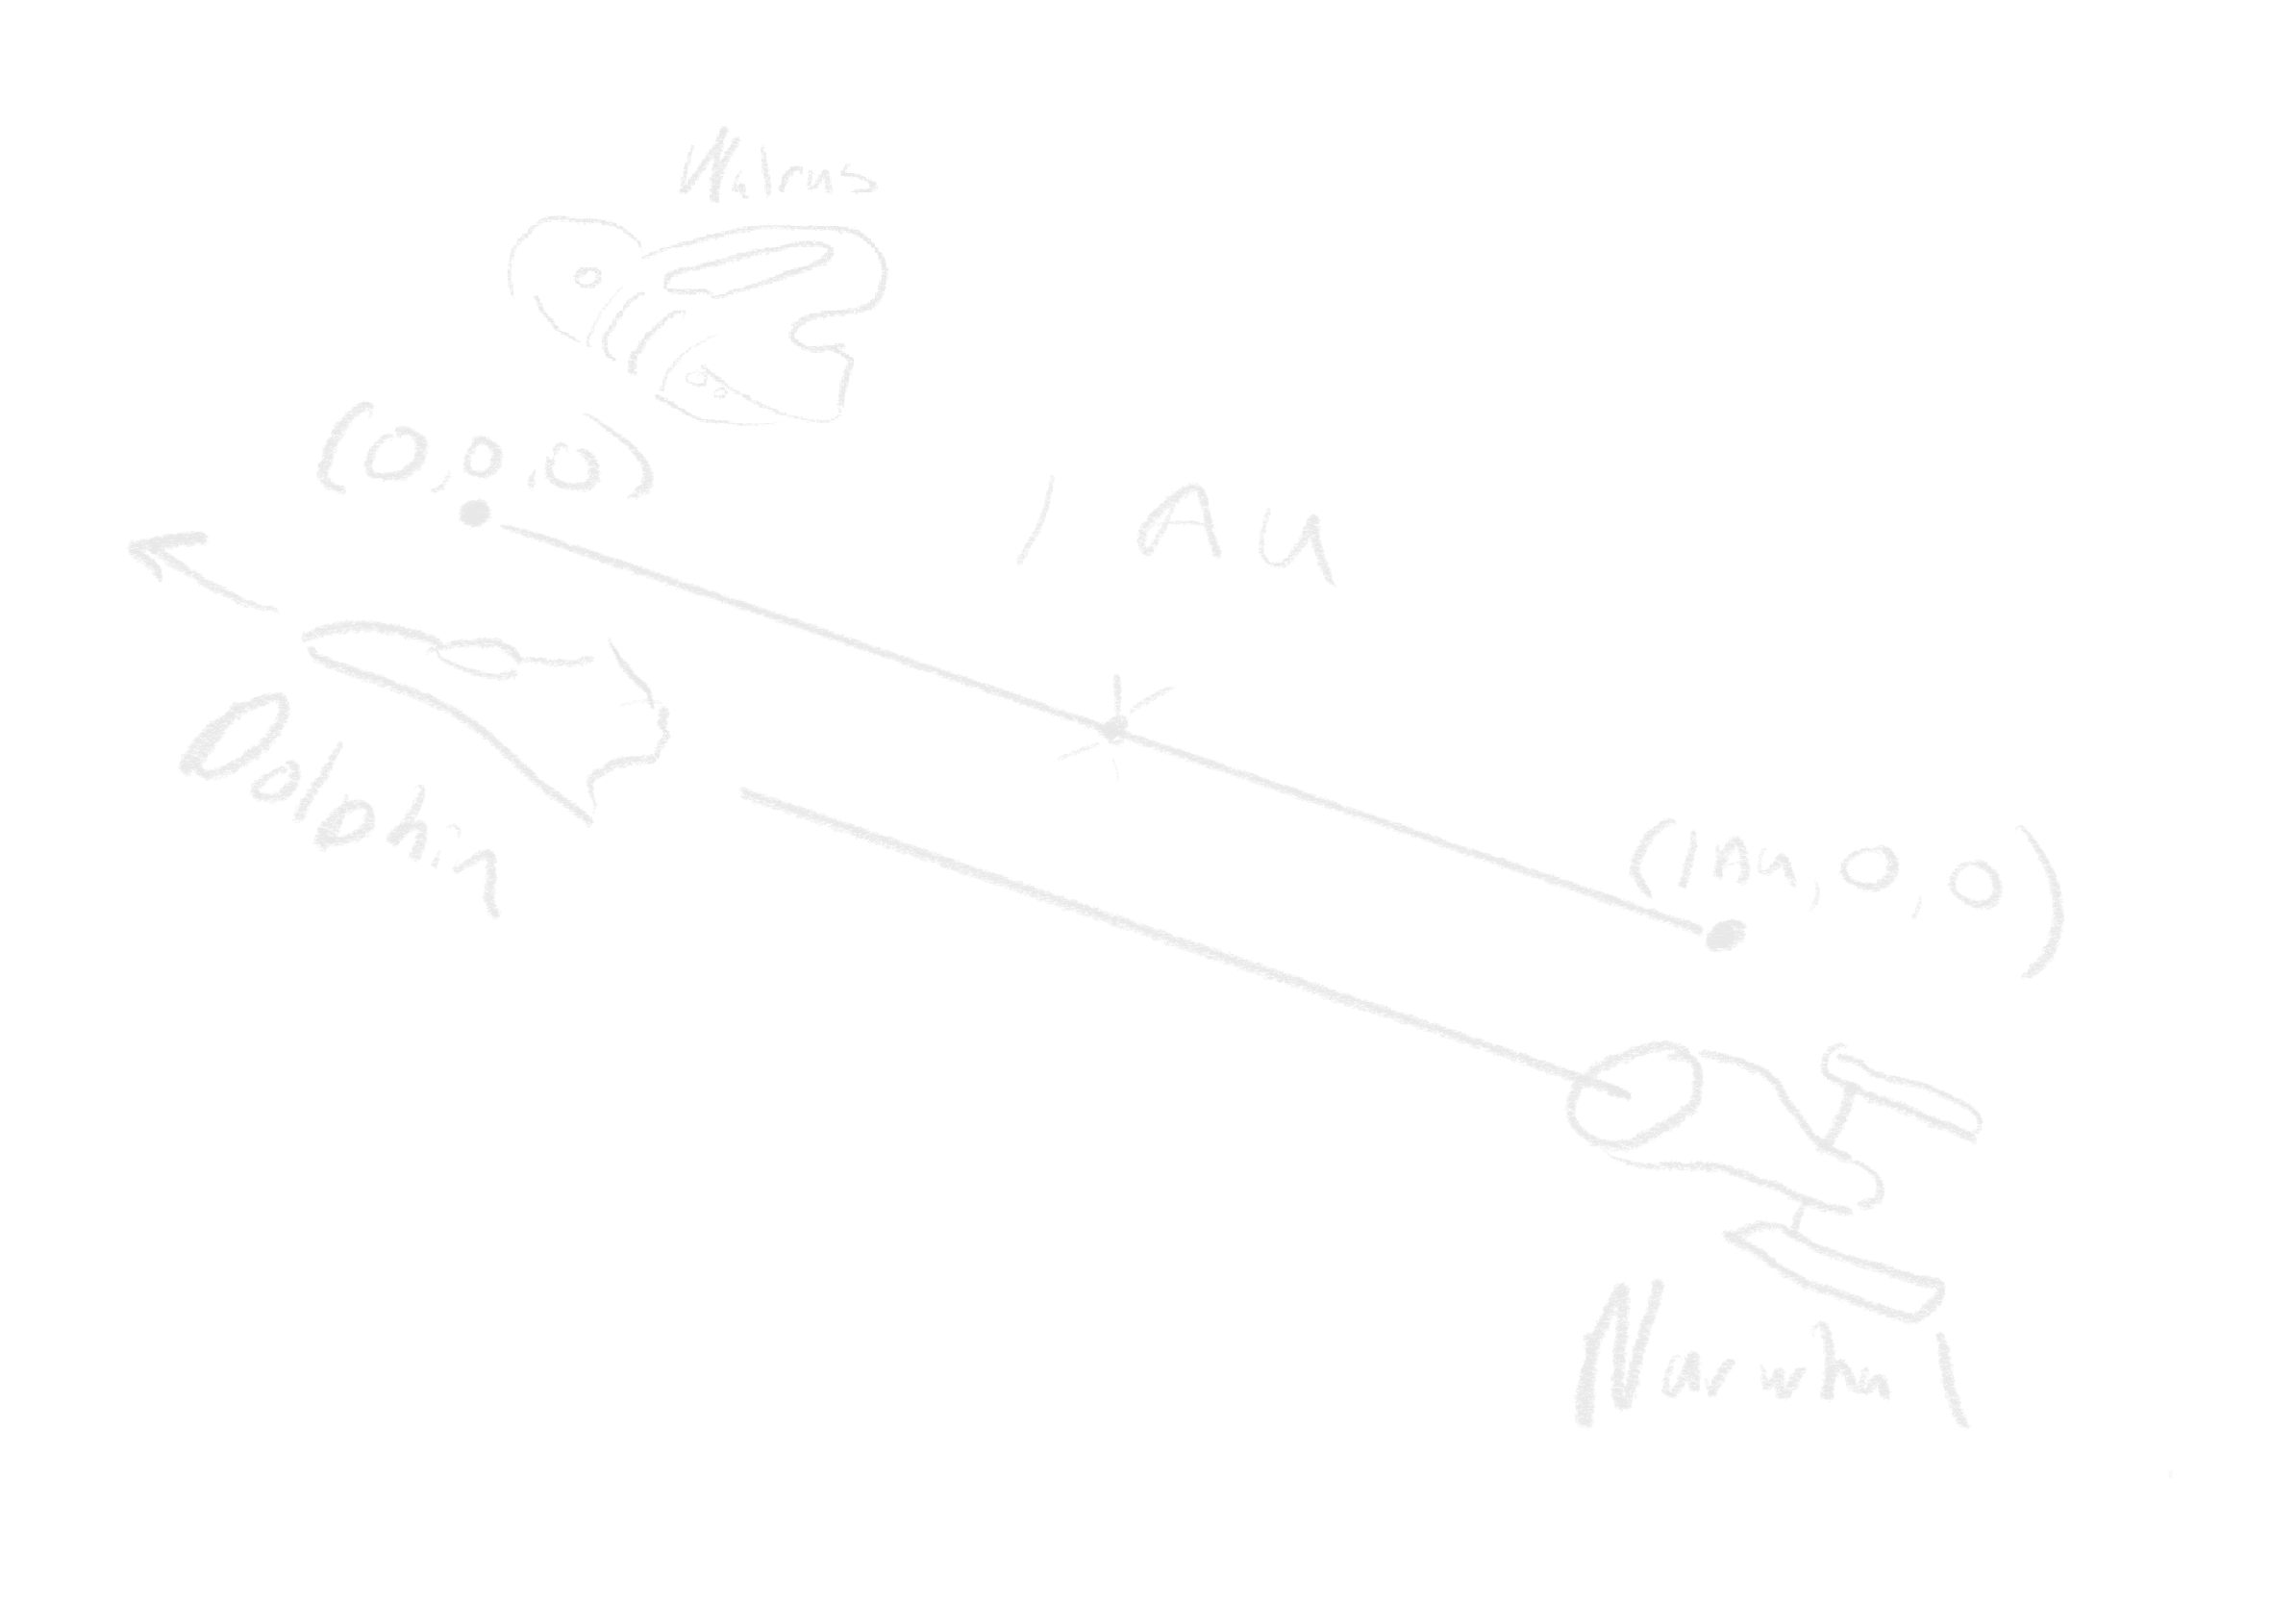 Walrus
(0,0,0)
1 AU
Dolphin
(1AU,0,0)
Narwhal